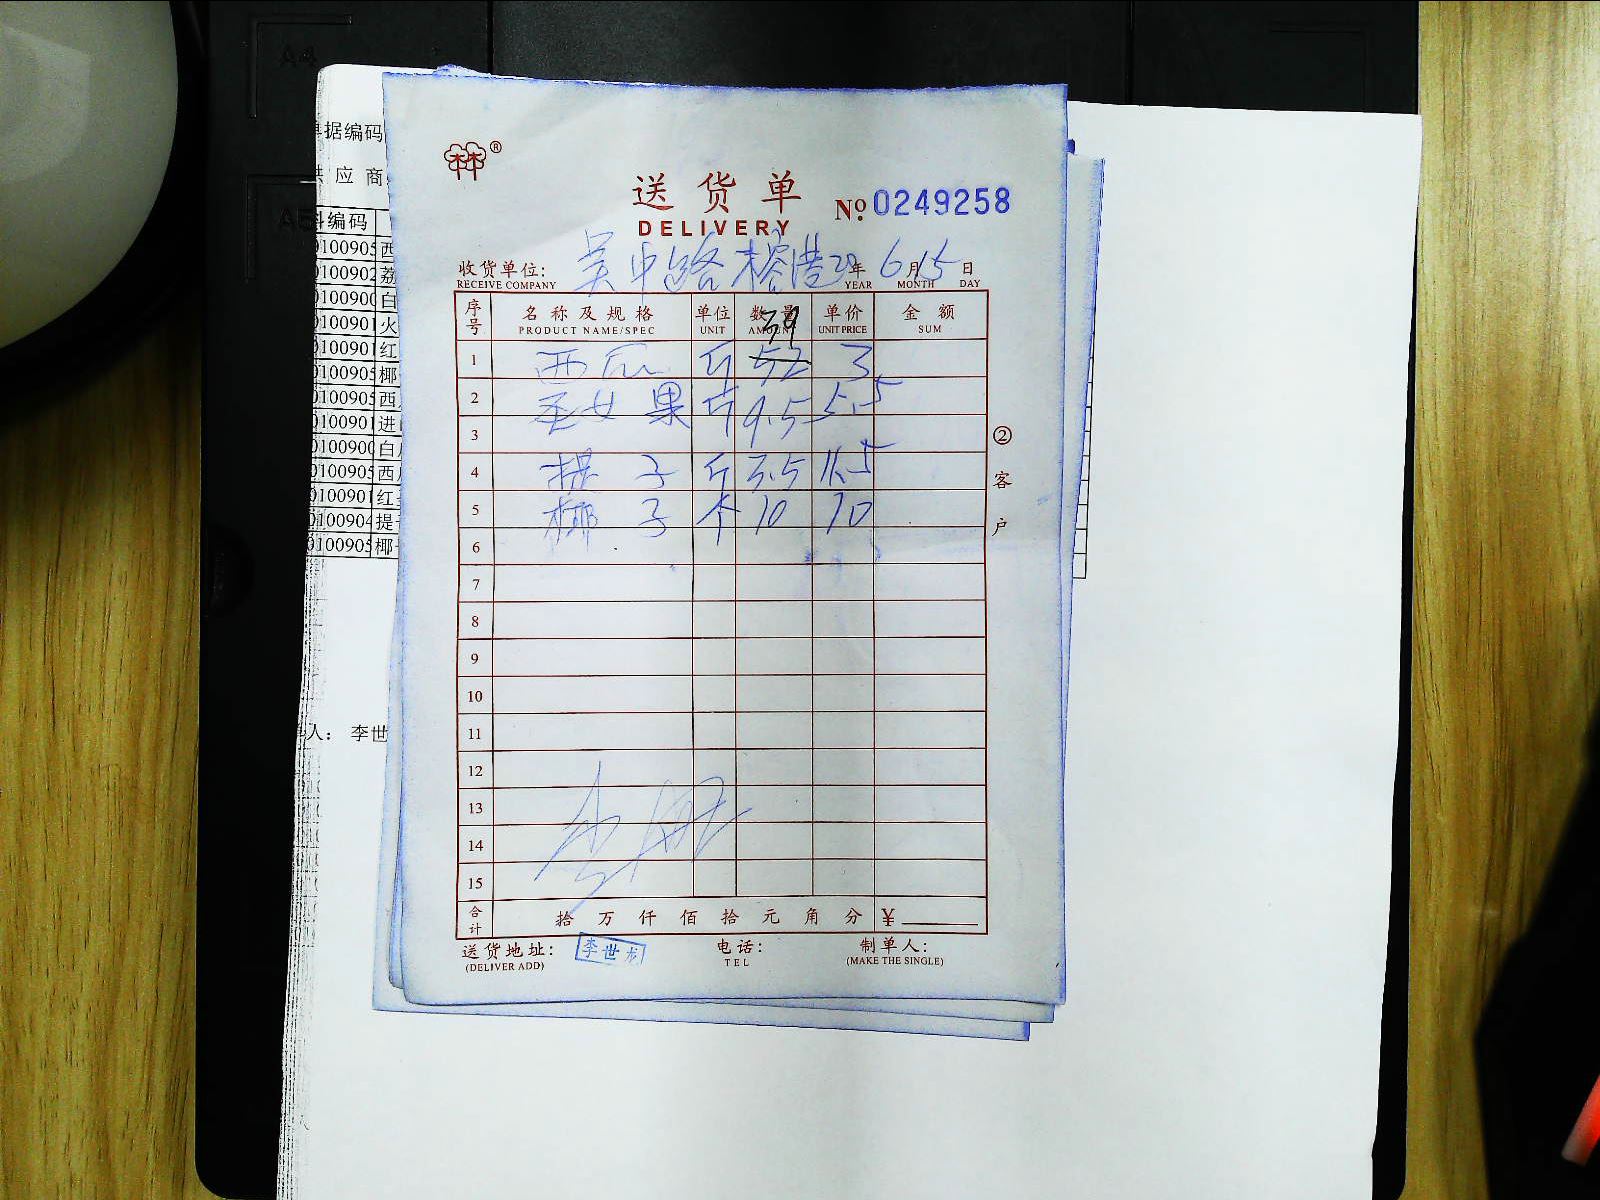 A4
据编码
应商
送货单
DELIVERY
№ 0249258
收货单位: 吴中路榕港 20年 6月 15日
RECEIVE COMPANY YEAR MONTH DAY
序号 名称及规格 单位 数量 单价 金额
PRODUCT NAME/SPEC UNIT AMOUNT UNIT PRICE SUM
39
1 西瓜 斤 52 3
2 圣女果 斤 9.5 5.5
3
4 提子 斤 3.5 5
5 椰子 个 10 10
6
7
8
9
10
11
12
13
14
15
合计 拾万仟佰拾元角分 ¥
送货地址: 李世龙 电话: 制单人:
(DELIVER ADD) TEL (MAKE THE SINGLE)
②客户
编码
0100905 西
0100902 荔
010090 白
010090 火
010090 红
0100905 椰
0100905 西
010090 进
010090 白
0100905 西
010090 红
0100904 提
0100905 椰
人: 李世